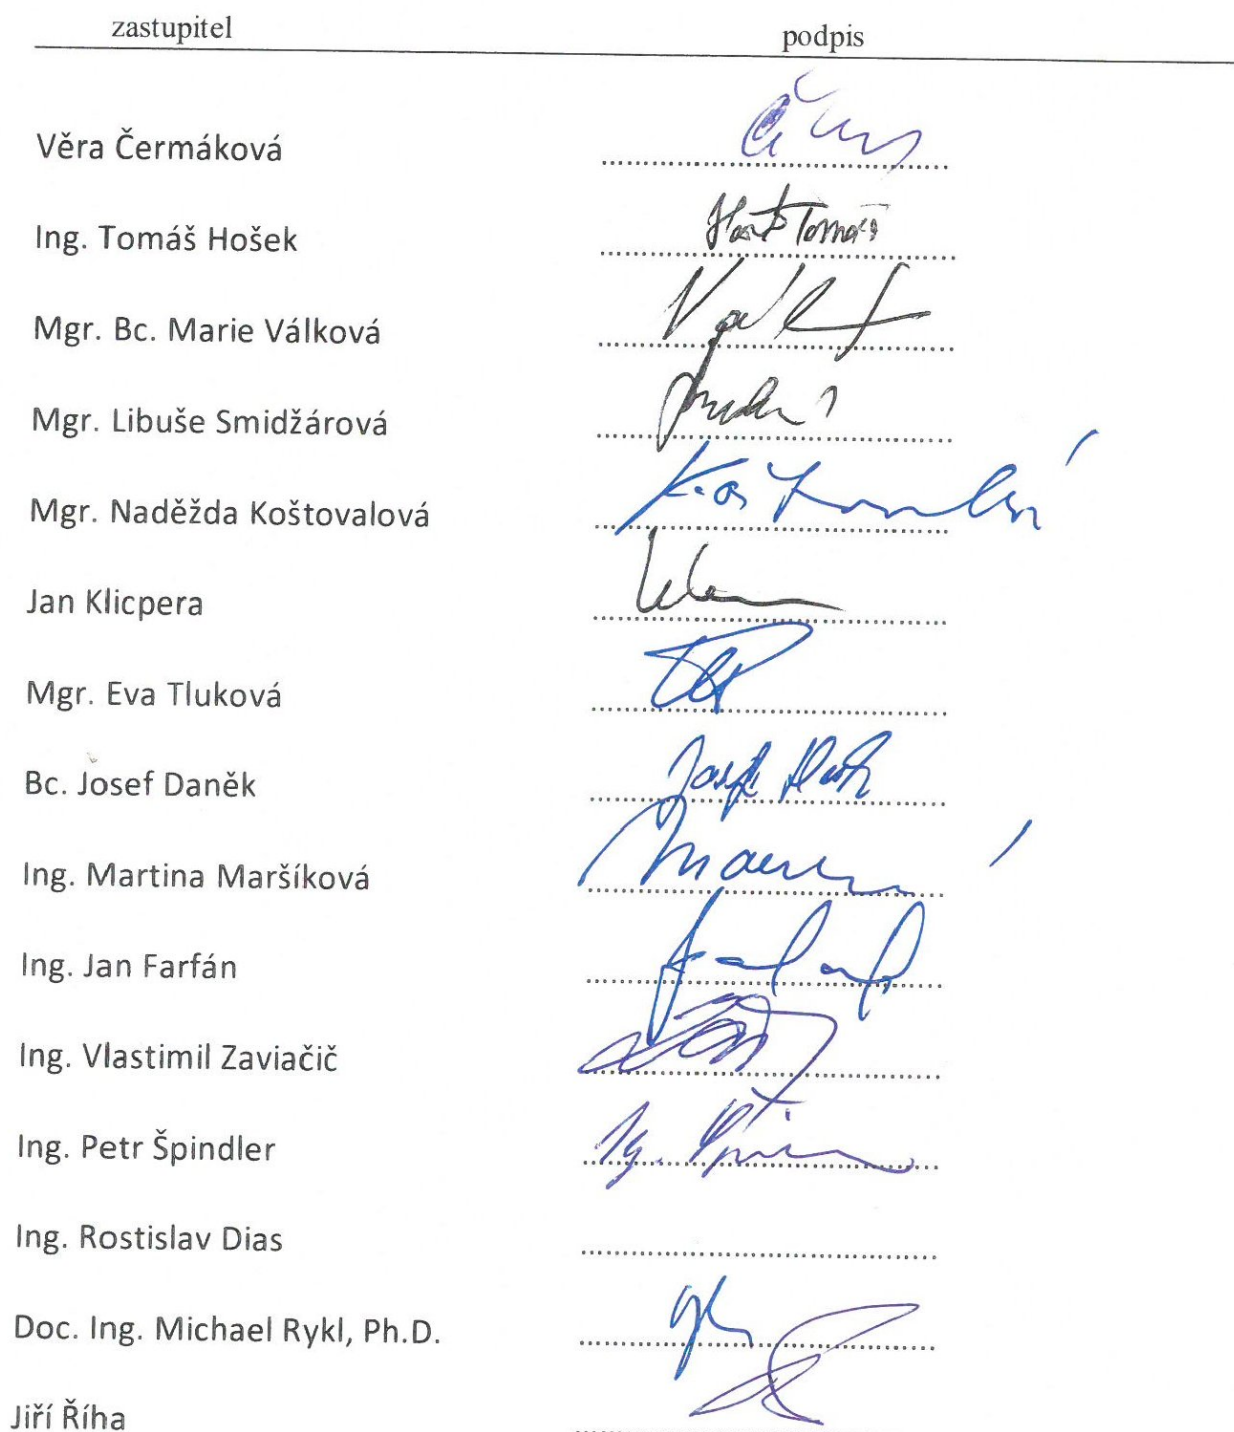 zastupitel podpis
Věra Čermáková
Ing. Tomáš Hošek
Mgr. Bc. Marie Válková
Mgr. Libuše Smidžárová
Mgr. Naděžda Koštovalová
Jan Klicpera
Mgr. Eva Tluková
Bc. Josef Daněk
Ing. Martina Maršíková
Ing. Jan Farfán
Ing. Vlastimil Zaviačič
Ing. Petr Špindler
Ing. Rostislav Dias
Doc. Ing. Michael Rykl, Ph.D.
Jiří Říha